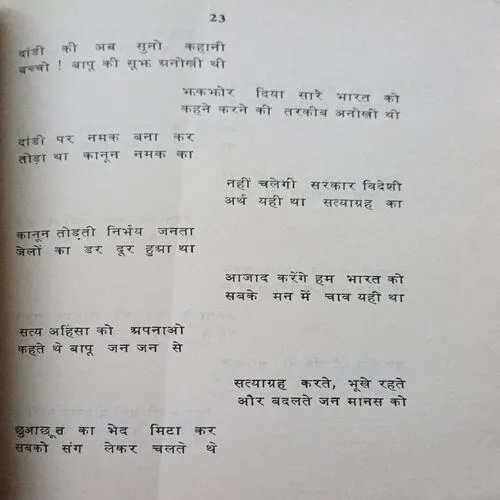 23
दांडी की अब सुनो कहानी
बच्चो ! बापू की सूझ अनोखी थी
झकझोर दिया सारे भारत को
कहने करने की तरकीब अनोखी थी
दांडी पर नमक बना कर
तोड़ा था कानून नमक का
नहीं चलेगी सरकार विदेशी
अर्थ यही था सत्याग्रह का
कानून तोड़ती निर्भय जनता
जेलों का डर दूर हुआ था
आजाद करेंगे हम भारत को
सबके मन में चाव यही था
सत्य अहिंसा को अपनाओ
कहते थे बापू जन जन से
सत्याग्रह करते, भूखे रहते
और बदलते जन मानस को
छुआछूत का भेद मिटा कर
सबको संग लेकर चलते थे